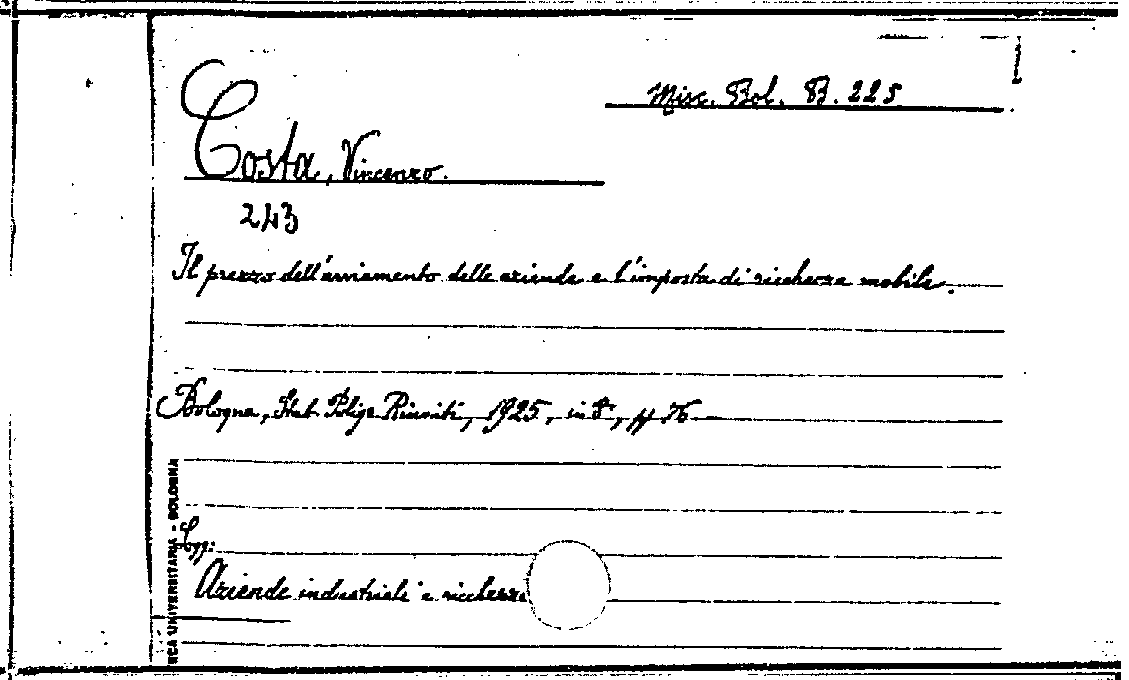 Misc. Bol. B. 225
Costa, Vincenzo.
243
Il prezzo dell'avviamento delle aziende e l'imposta di ricchezza mobile.
Bologna, Stab. Polig. Riuniti, 1925, in 8°, pp 76
Sogg:
Aziende industriali e ricchezza
RCA UNIVERSITARIA - BOLOGNA